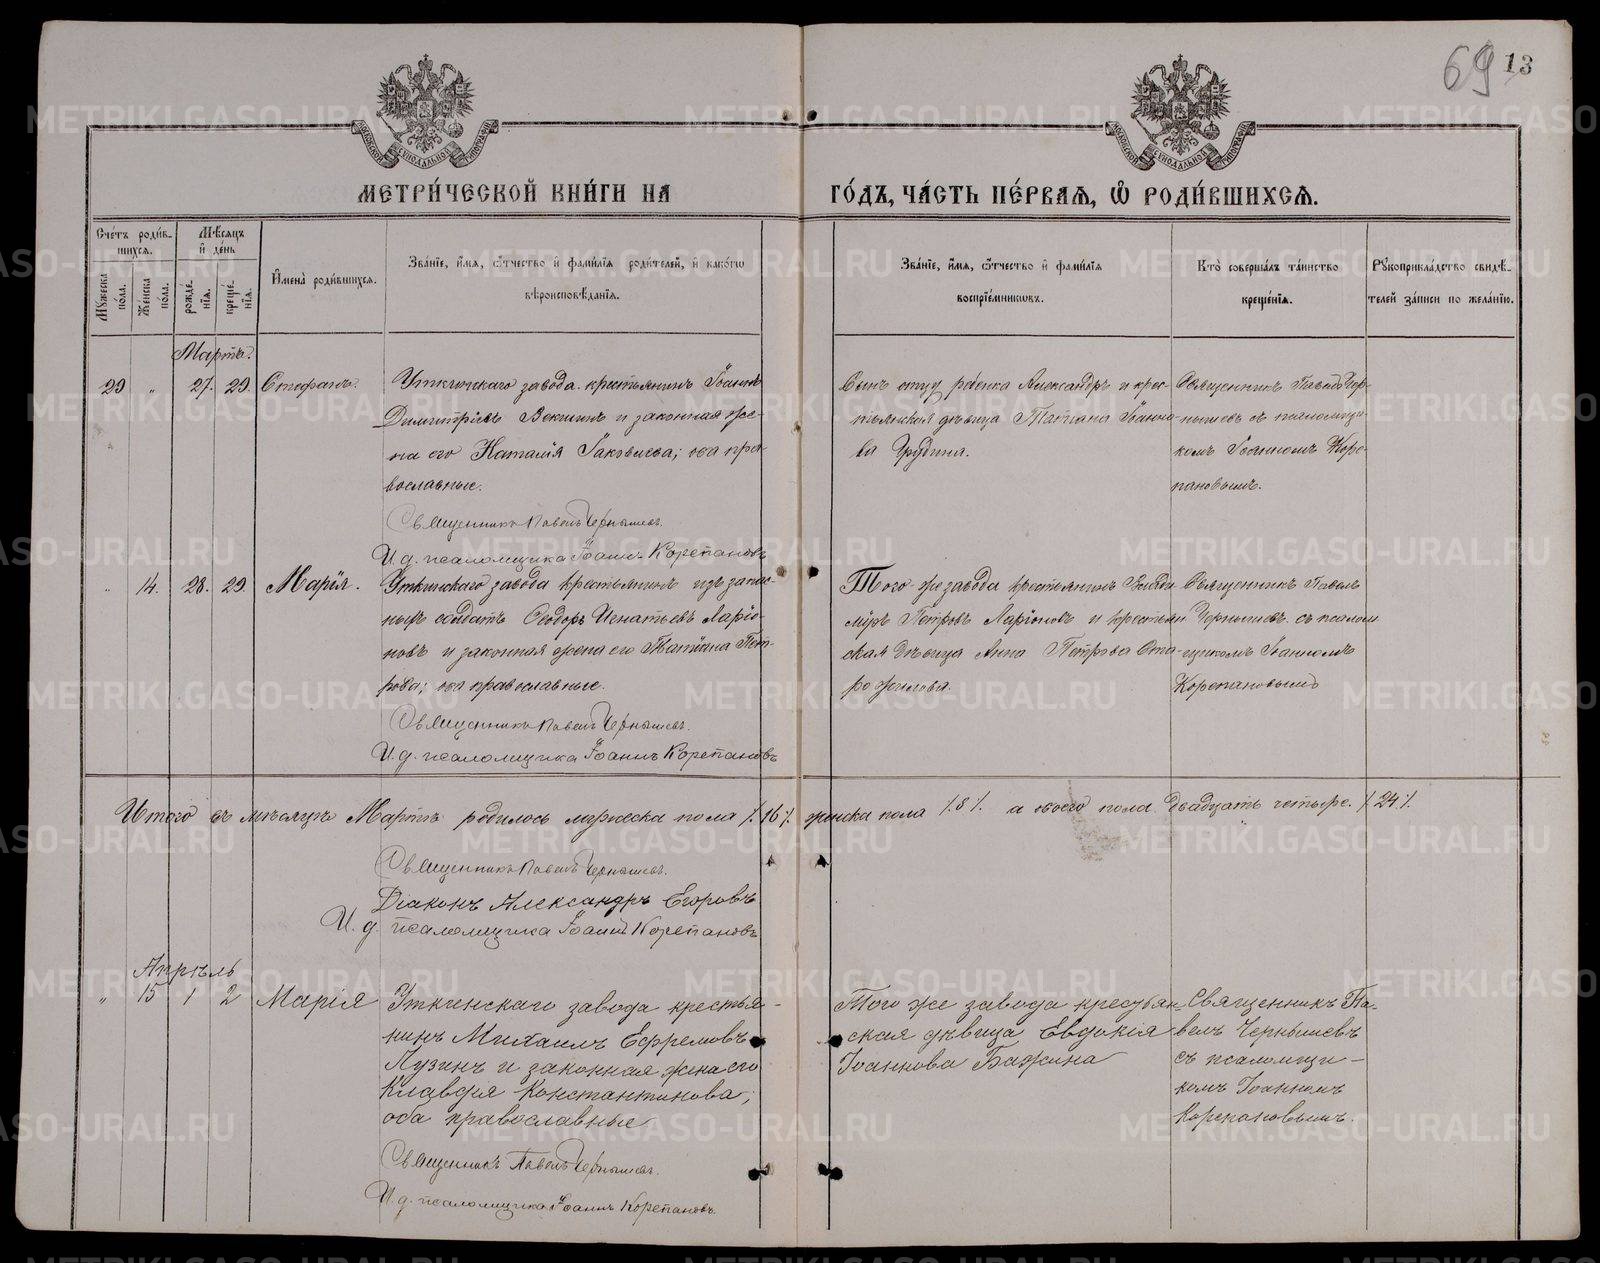 69 13
МЕТРИ́ЧЕСКОЙ КНИ́ГИ НА ГО́ДЪ, ЧА́СТЬ ПЕ́РВАѦ, Ѡ РОДИ́ВШИХСѦ.
Сче́тъ роди́в-
шихся.
Мѣ́сяцъ
и҆ де́нь
Мꙋ́жеска
по́ла.
Же́нска
по́ла.
рожде́-
нїѧ.
креще́-
нїѧ.
И҆мена̀ роди́вшихся.
Зва́нїе, и҆́мѧ, ѻ҆́тчество и҆ фами́лїѧ роди́телей, и҆ како́гѡ
вѣроисповѣ́данїѧ.
Зва́нїе, и҆́мѧ, ѻ҆́тчество и҆ фами́лїѧ
воспрїе́мниковъ.
Кто̀ соверша́лъ та́инство
креще́нїѧ.
Рꙋкоприкла́дство свидѣ́-
телей за́писи по жела́нїю.
Мартъ.
29 " 27. 29. Стефанъ.
Уткинскаго завода крестьянинъ Іоаннъ
Димитріевъ Векшинъ и законная же-
на его Наталія Іаковлева; оба пра-
вославные.
Священникъ Павелъ Чернышевъ.
И. д. псаломщика Іоаннъ Корепановъ
Сынъ отцу ребенка Александръ и крес-
тьянская дѣвица Татіана Іоанно-
ва Грудина.
Священникъ Павелъ Чер-
нышевъ съ псаломщи-
комъ Іоанномъ Коре-
пановымъ.
" 14. 28. 29. Марія.
Уткинскаго завода крестьянинъ изъ запас-
ныхъ солдатъ Ѳеодоръ Игнатьевъ Ларіо-
новъ и законная жена его Татіана Пет-
рова; оба православные.
Священникъ Павелъ Чернышевъ.
И. д. псаломщика Іоаннъ Корепановъ
Того-же завода крестьянинъ Влади-
міръ Петровъ Ларіоновъ и крестьян-
ская дѣвица Анна Петрова Ста-
рожилова.
Священникъ Павелъ
Чернышевъ съ псалом-
щикомъ Іоанномъ
Корепановымъ
Итого въ мѣсяцѣ Мартѣ родилось мужеска пола /.16./ женска пола /.8./. а обоего пола двадцать четыре. /.24./.
Священникъ Павелъ Чернышевъ.
Діаконъ Александръ Егоровъ
И. д. псаломщика Іоаннъ Корепановъ
Апрѣль
" 15 1 2 Марія
Уткинскаго завода крестья-
нинъ Михаилъ Ефремовъ
Пузинъ и законная жена его
Клавдія Константинова,
оба православные
Священникъ Павелъ Чернышевъ.
И. д. псаломщика Іоаннъ Корепановъ.
Того же завода крестьян-
ская дѣвица Евдокія
Іоаннова Бажина
Священникъ Па-
велъ Чернышевъ
съ псаломщи-
комъ Іоанномъ
Корепановымъ.
METRIKI.GASO-URAL.RU